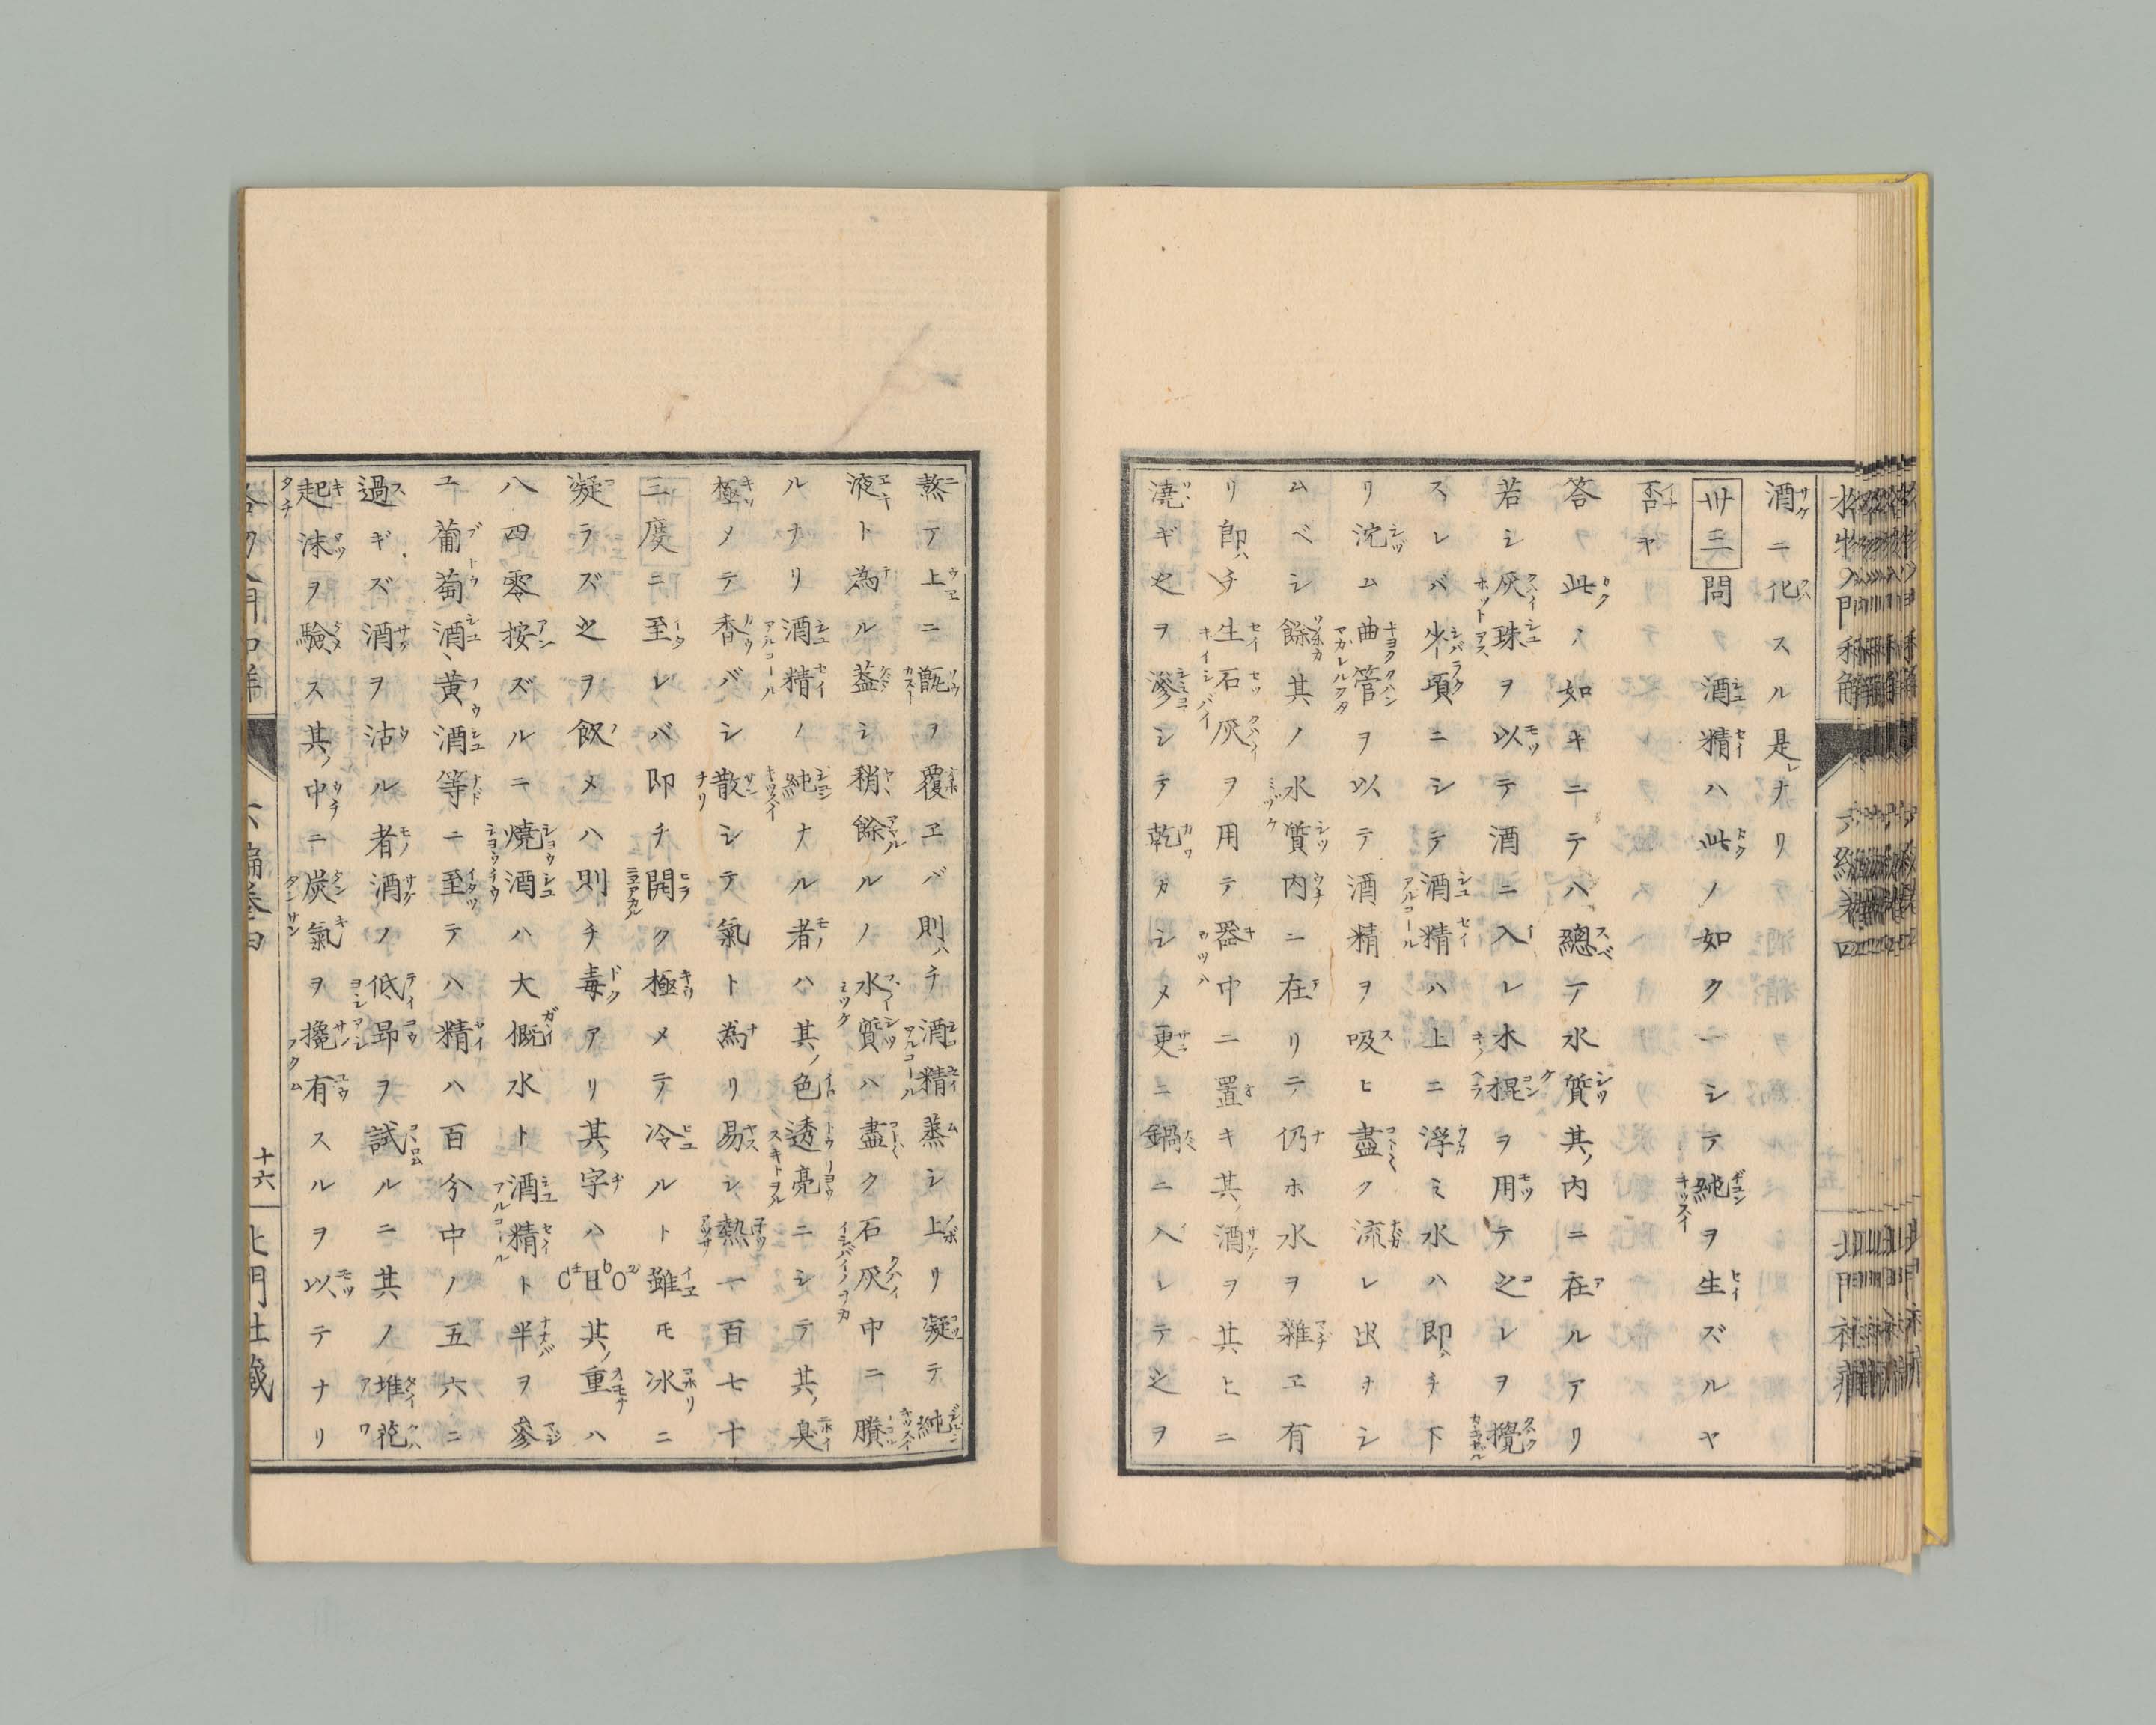 酒ニ化スル是レナリ
卅三 問 酒精ハ此ノ如クニシテ純ヲ生ズルヤ
否ヤ
答 此ノ如キニテハ總テ水質其ノ内ニ在ルアリ
若シ灰珠ヲ以テ酒ニ入レ木棍ヲ用テ之レヲ攪
スレバ少頃ニシテ酒精ハ上ニ浮ミ水ハ即ハチ下
リ沱ム曲管ヲ以テ酒精ヲ吸ヒ盡ク流レ出サシ
ムベシ餘其ノ水質内ニ在リテ仍ナホ水ヲ雜ヱ有
リ即ハチ生石灰ヲ用テ器中ニ置キ其ノ酒ヲ其上ニ
澆ギ之ヲ滲シテ乾カシメ更ニ鍋ニ入レテ之ヲ
熬テ上ニ甑ヲ覆ヱバ則ハチ酒精蒸シ上リ凝テ純
液ト為ル蓋シ稍餘ルノ水質ハ盡ク石灰中ニ賸
ルナリ酒精ノ純ナル者ハ其ノ色透亮ニシテ其ノ臭
極メテ香バシ散シテ氣ト為リ易シ熱一百七十
三度ニ至レバ即チ開ク極メテ冷ルト雖モ冰ニ
凝ラズ之ヲ飲メハ則チ毒アリ其ノ字ハC⁴H⁶O²其ノ重ハ
八四零按ズルニ燒酒ハ大概水ト酒精ト半ヲ參
ユ葡萄酒、黄酒等ニ至テハ精ハ百分中ノ五六ニ
過ギズ酒ヲ沽ル者酒ノ低昻ヲ試ルニ其ノ堆花
起沫ヲ驗ス其ノ中ニ炭氣ヲ攙有スルヲ以テナリ
六編卷四
十六
北門社藏